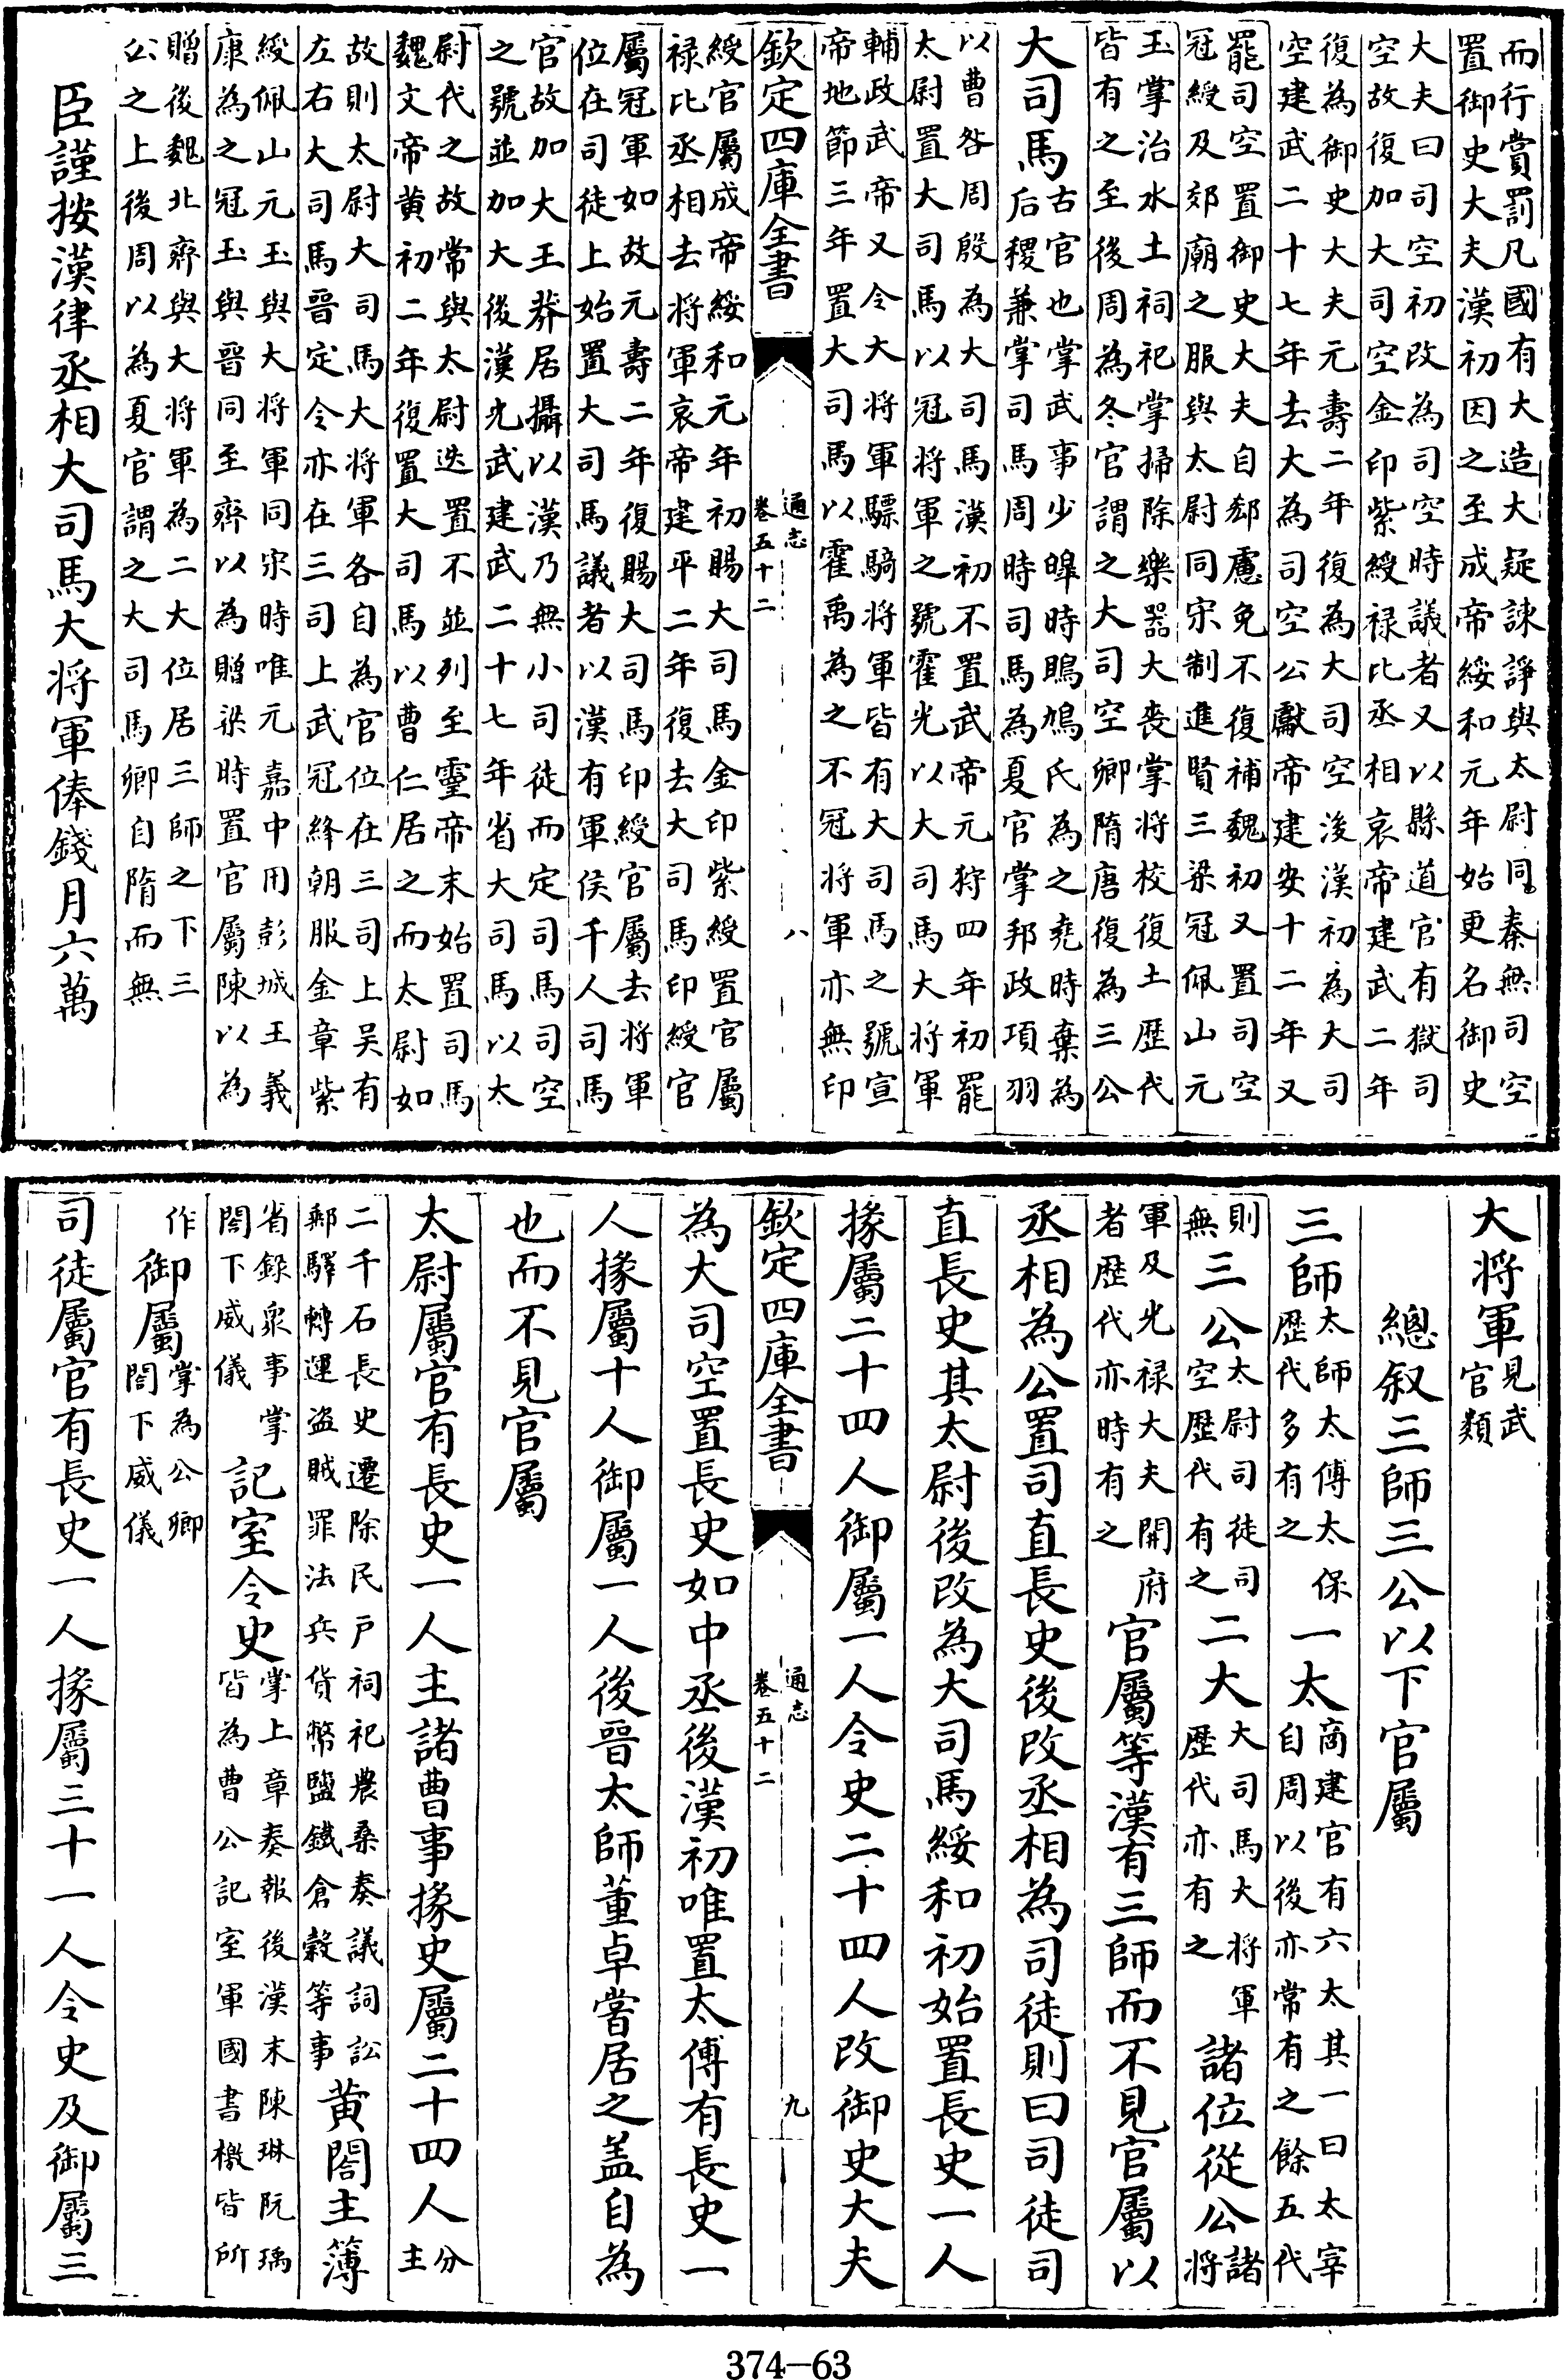 而行賞罰凡國有大造大疑諫諍與太尉同秦無司空
置御史大夫漢初因之至成帝綏和元年始更名御史
大夫曰司空初改為司空時議者又以縣道官有獄司
空故復加大司空金印紫綬禄比丞相哀帝建武二年
復為御史大夫元壽二年復為大司空後漢初為大司
空建武二十七年去大為司空公獻帝建安十二年又
罷司空置御史大夫自郄慮免不復補魏初又置司空
冠綬及郊廟之服與太尉同宋制進賢三梁冠佩山元
玉掌治水土祠祀掌掃除樂器大喪掌将校復土歴代
皆有之至後周為冬官謂之大司空卿隋唐復為三公
大司馬古官也掌武事少皞時鴡鳩氏為之堯時棄為
后稷兼掌司馬周時司馬為夏官掌邦政項羽
以曹咎周殷為大司馬漢初不置武帝元狩四年初罷
太尉置大司馬以冠将軍之號霍光以大司馬大将軍
輔政武帝又令大将軍驃騎将軍皆有大司馬之號宣
帝地節三年置大司馬以霍禹為之不冠将軍亦無印
欽定四庫全書
通志
卷五十二
八
綬官屬成帝綏和元年初賜大司馬金印紫綬置官屬
禄比丞相去将軍哀帝建平二年復去大司馬印綬官
屬冠軍如故元壽二年復賜大司馬印綬官屬去将軍
位在司徒上始置大司馬議者以漢有軍侯千人司馬
官故加大王莽居攝以漢乃無小司徒而定司馬司空
之號並加大後漢光武建武二十七年省大司馬以太
尉代之故常與太尉迭置不並列至靈帝末始置司馬
魏文帝黄初二年復置大司馬以曹仁居之而太尉如
故則太尉大司馬大将軍各自為官位在三司上吴有
左右大司馬晉定令亦在三司上武冠絳朝服金章紫
綬佩山元玉與大将軍同宋時唯元嘉中用彭城王義
康為之冠玉與晉同至齊以為贈梁時置官屬陳以為
贈後魏北齊與大将軍為二大位居三師之下三
公之上後周以為夏官謂之大司馬卿自隋而無
臣謹按漢律丞相大司馬大将軍俸錢月六萬
大将軍見武
官類
總叙三師三公以下官屬
三師太師太傅太保
歴代多有之一太商建官有六太其一曰太宰
自周以後亦常有之餘五代
則
無三公太尉司徒司
空歴代有之二大大司馬大将軍
歴代亦有之諸位從公諸
将
軍及光禄大夫開府
者歴代亦時有之官屬等漢有三師而不見官屬以
丞相為公置司直長史後改丞相為司徒則曰司徒司
直長史其太尉後改為大司馬綏和初始置長史一人
掾屬二十四人御屬一人令史二十四人改御史大夫
欽定四庫全書
通志
卷五十二
九
為大司空置長史如中丞後漢初唯置太傅有長史一
人掾屬十人御屬一人後晉太師董卓嘗居之盖自為
也而不見官屬
太尉屬官有長史一人主諸曹事掾史屬二十四人分
主
二千石長史遷除民戶祠祀農桑奏議詞訟
郵驛轉運盗賊罪法兵貨幣鹽鐵倉穀等事黄閤主簿
省錄衆事掌
閤下威儀記室令史掌上章奏報後漢末陳琳阮瑀
皆為曹公記室軍國書檄皆所
作
御屬掌為公卿
閤下威儀
司徒屬官有長史一人掾屬三十一人令史及御屬三
374—63